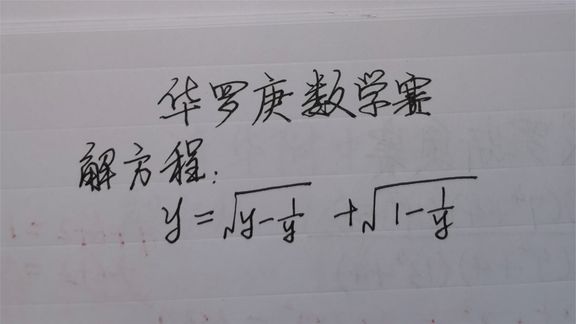 华罗庚数学赛
解方程:
y=√(y-1/y) +√(1-1/y)